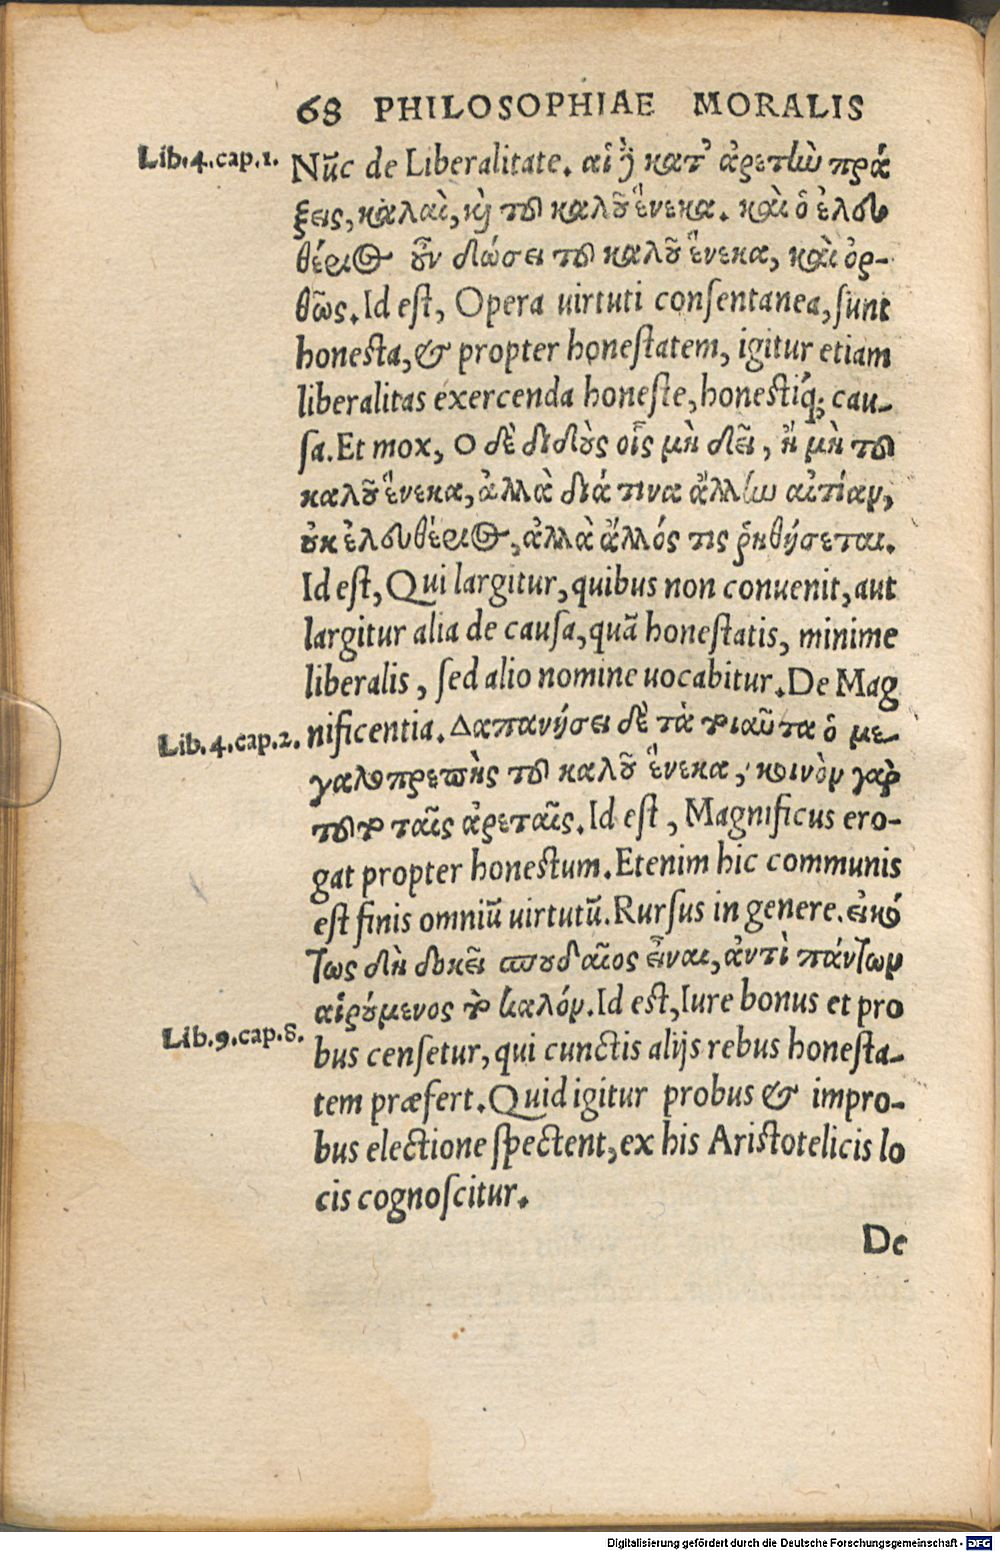 68 PHILOSOPHIAE MORALIS
Lib.4.cap.1.
Nũc de Liberalitate. αἱ ȣ̓͂ κατ' ἀρετὴν πρά
ξεις, καλαὶ, κὶ τοῦ καλοῦ ἕνεκα. καὶ ὁ ἐλευ
θέριος οὖν δώσει τοῦ καλοῦ ἕνεκα, καὶ ὀρ-
θῶς. Id est, Opera uirtuti consentanea, sunt
honesta, & propter honestatem, igitur etiam
liberalitas exercenda honeste, honestiq́; cau-
sa. Et mox, Ο δὲ διδοὺς οἷς μὴ δεῖ, ἢ μὴ τοῦ
καλοῦ ἕνεκα, ἀλλὰ διά τινα ἄλλην αἰτίαν,
οὐκ ἐλευθέριος, ἀλλὰ ἄλλός τις ῥηθήσεται.
Id est, Qui largitur, quibus non conuenit, aut
largitur alia de causa, quã honestatis, minime
liberalis, sed alio nomine uocabitur. De Mag
Lib.4.cap.2.
nificentia. Δαπανήσει δὲ τὰ τοιαῦτα ὁ με-
γαλοπρεπὴς τοῦ καλοῦ ἕνεκα, κοινὸν γὰρ
τοῦτο ταῖς ἀρεταῖς. Id est, Magnificus ero-
gat propter honestum. Etenim hic communis
est finis omniũ uirtutũ. Rursus in genere. εἰκό
τως δὴ δοκεῖ σπουδαῖος εἶναι, ἀντὶ πάντων
αἱρούμενος τὸ καλόν. Id est, Iure bonus et pro
Lib.9.cap.8.
bus censetur, qui cunctis alijs rebus honesta-
tem præfert. Quid igitur probus & impro-
bus electione spectent, ex his Aristotelicis lo
cis cognoscitur.
De
Digitalisierung gefördert durch die Deutsche Forschungsgemeinschaft - DFG